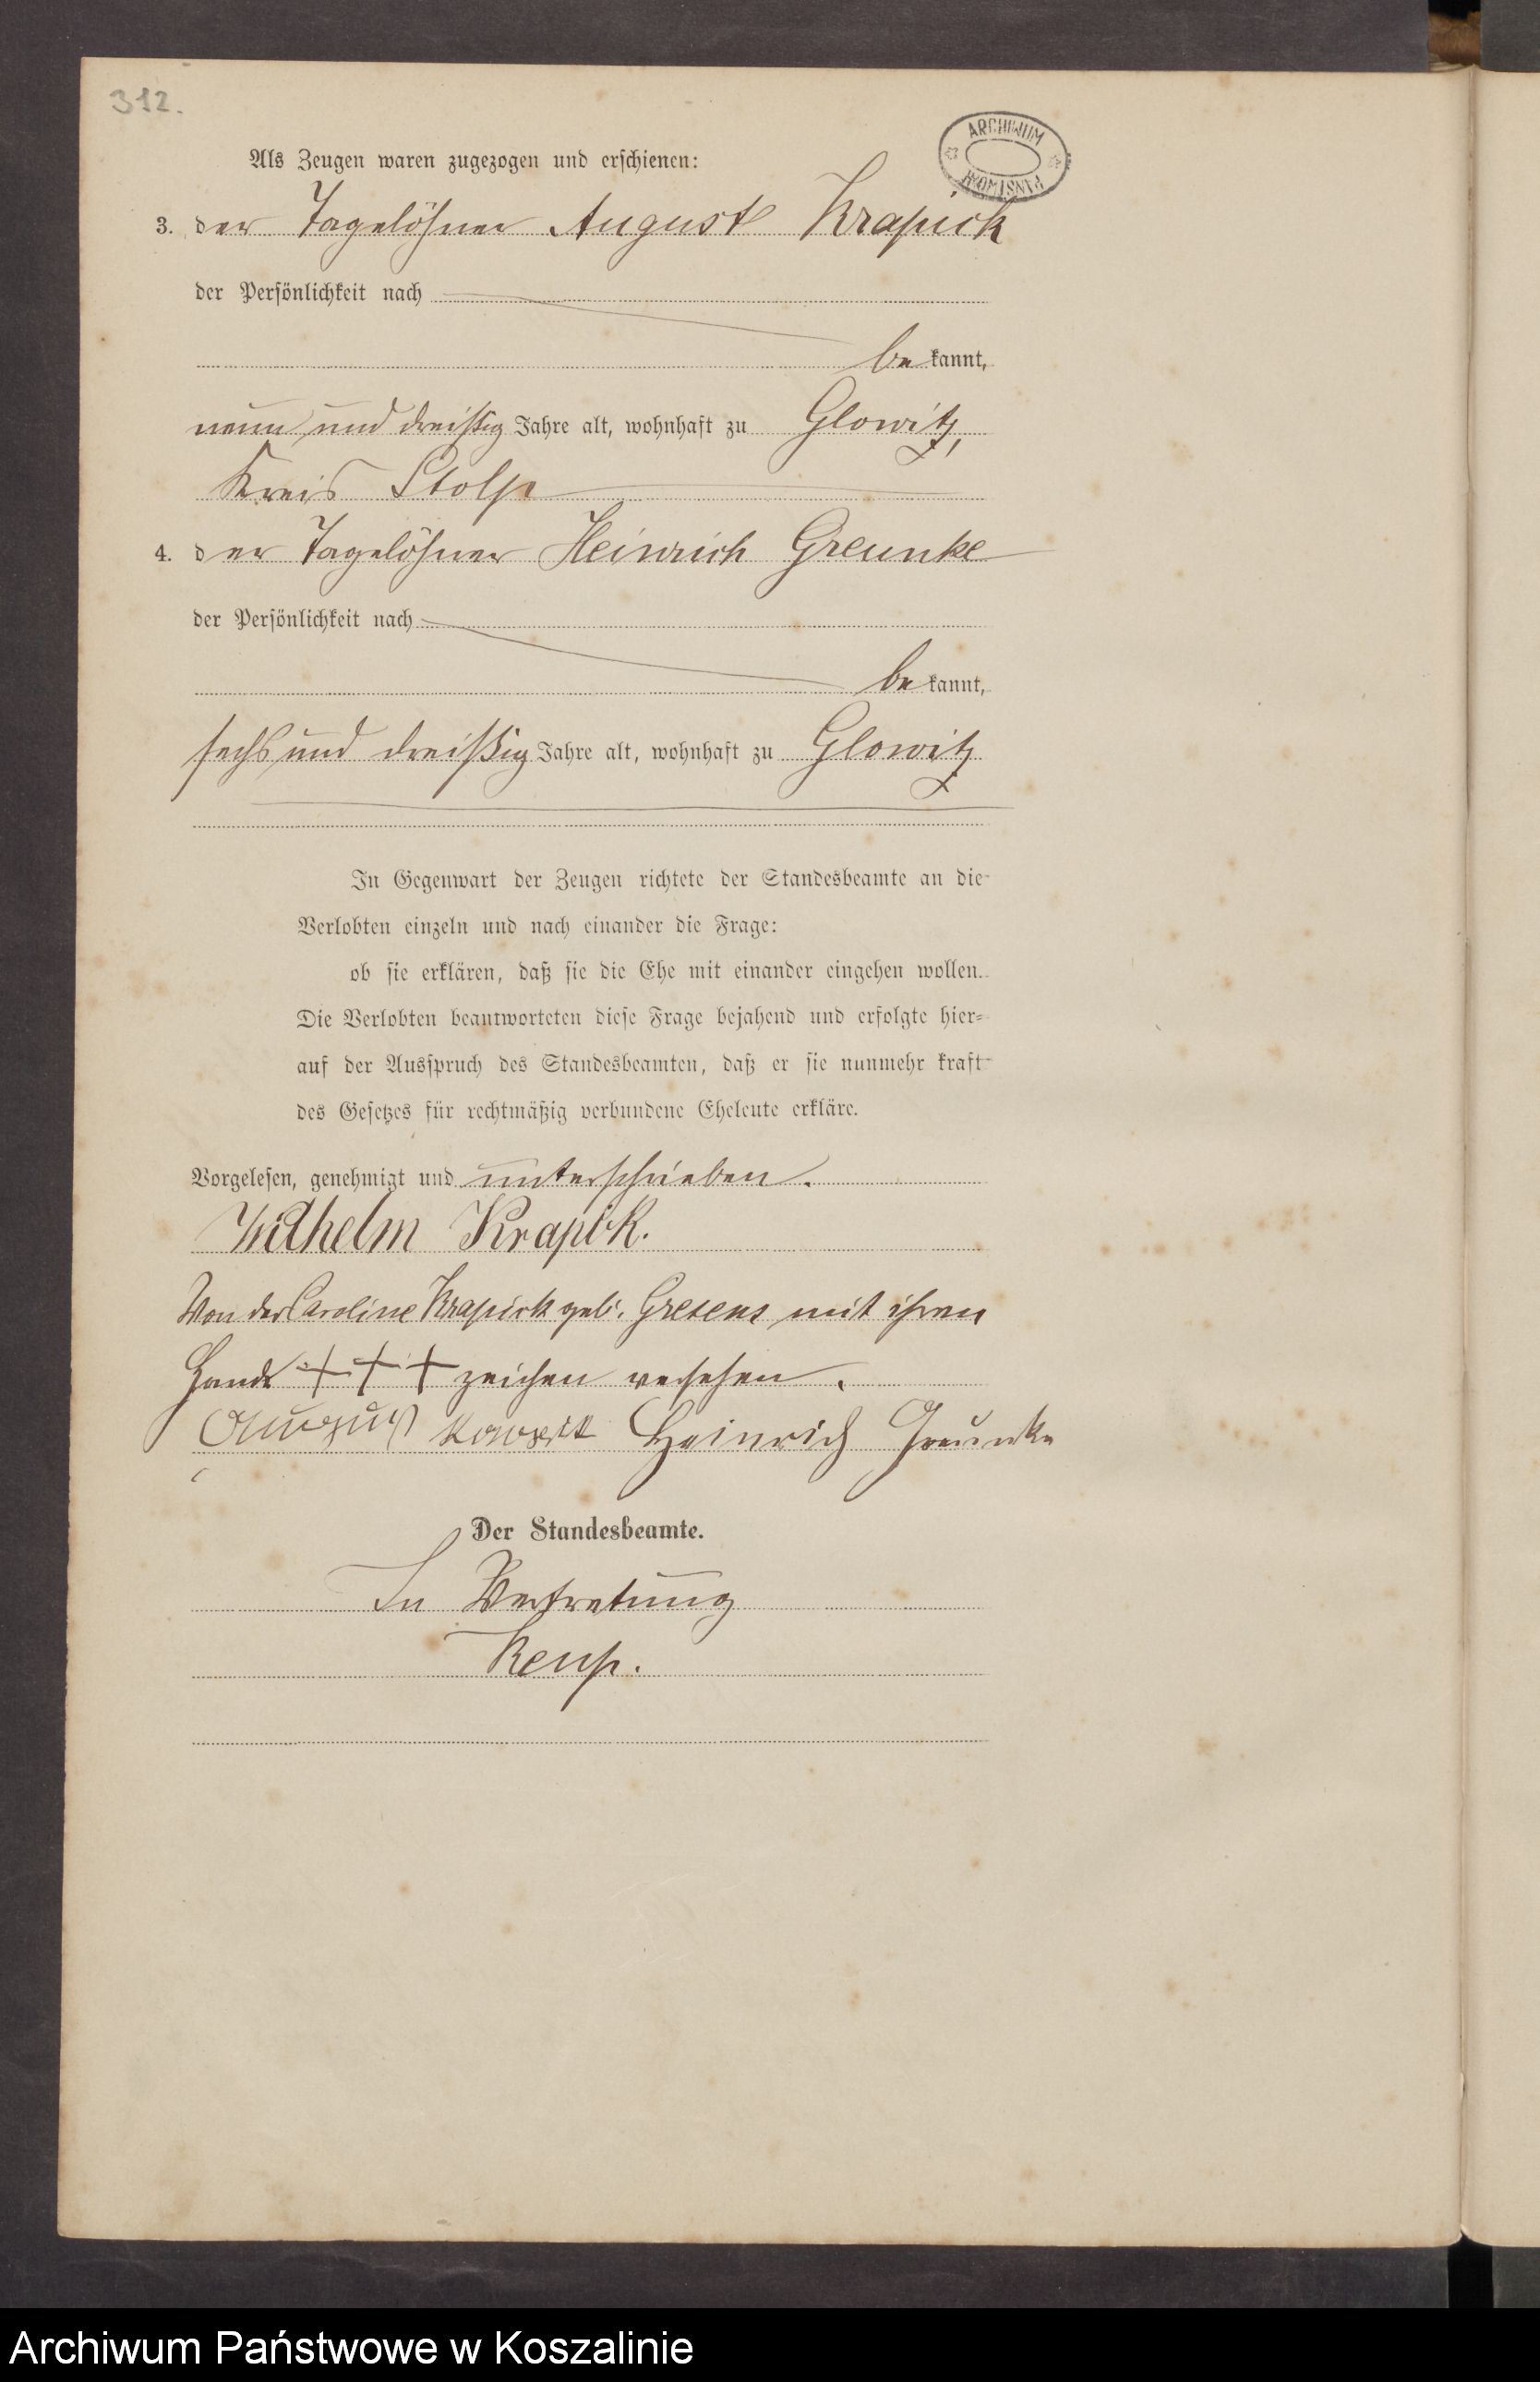 312.
ARCHIWUM
PAŃSTWOWE
Als Zeugen waren zugezogen und erschienen:
3. der Tagelöhner August Krapick
der Persönlichkeit nach
be kannt,
neun und dreißig Jahre alt, wohnhaft zu Glowitz,
Kreis Stolp
4. der Tagelöhner Heinrich Greunke
der Persönlichkeit nach
be kannt,
sechs und dreißig Jahre alt, wohnhaft zu Glowitz
In Gegenwart der Zeugen richtete der Standesbeamte an die
Verlobten einzeln und nach einander die Frage:
ob sie erklären, daß sie die Ehe mit einander eingehen wollen.
Die Verlobten beantworteten diese Frage bejahend und erfolgte hier-
auf der Ausspruch des Standesbeamten, daß er sie nunmehr kraft
des Gesetzes für rechtmäßig verbundene Eheleute erkläre.
Vorgelesen, genehmigt und unterschrieben.
Wilhelm Krapik.
Von der Caroline Krapick geb. Gresens mit ihren
Hand +++ zeichen versehen.
August Krapik Heinrich Greunke
Der Standesbeamte.
In Vertretung
Archiwum Państwowe w Koszalinie